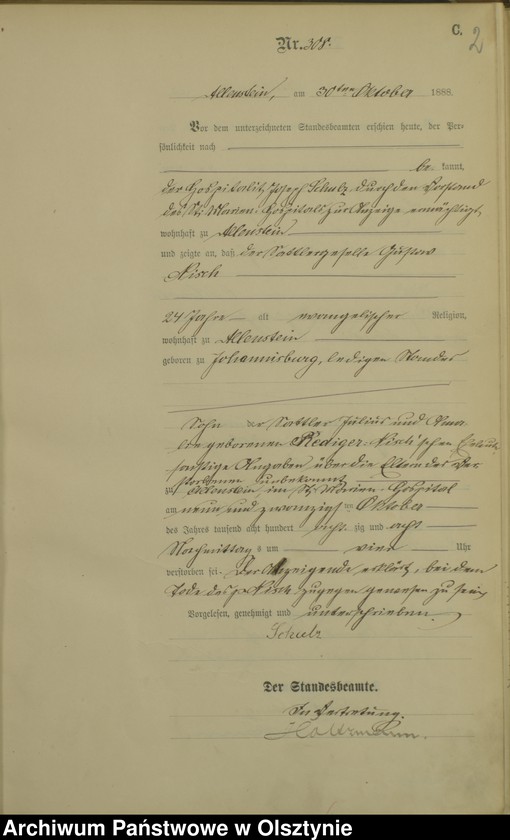 C. 2
Nr. 308.
Allenstein, am 30ten Oktober 1888.
Vor dem unterzeichneten Standesbeamten erschien heute, der Per-
sönlichkeit nach
be kannt,
der Hospitalit Joseph Schulz durch den Vorstand
des St. Marien-Hospitals zur Anzeige ermächtigt,
wohnhaft zu Allenstein
und zeigte an, daß der Sattlergeselle Gustav
Nisch
24 Jahre alt evangelischer Religion,
wohnhaft zu Allenstein
geboren zu Johannisburg, ledigen Standes
Sohn der Sattler Julius und
geborenen Rediger-Nisch'schen
sonstige Angaben über die Eltern des Ver
storbenen unbekannt
zu Allenstein im St. Marien-Hospital
am neun und zwanzigsten Oktober
des Jahres tausend acht hundert acht zig und acht
Nachmittags um vier Uhr
verstorben sei. Der Anzeigende erklärt, bei dem
Tode des p. Nisch zugegen gewesen zu sein
Vorgelesen, genehmigt und unterschrieben.
Schulz
Der Standesbeamte.
In Vertretung.
Archiwum Państwowe w Olsztynie